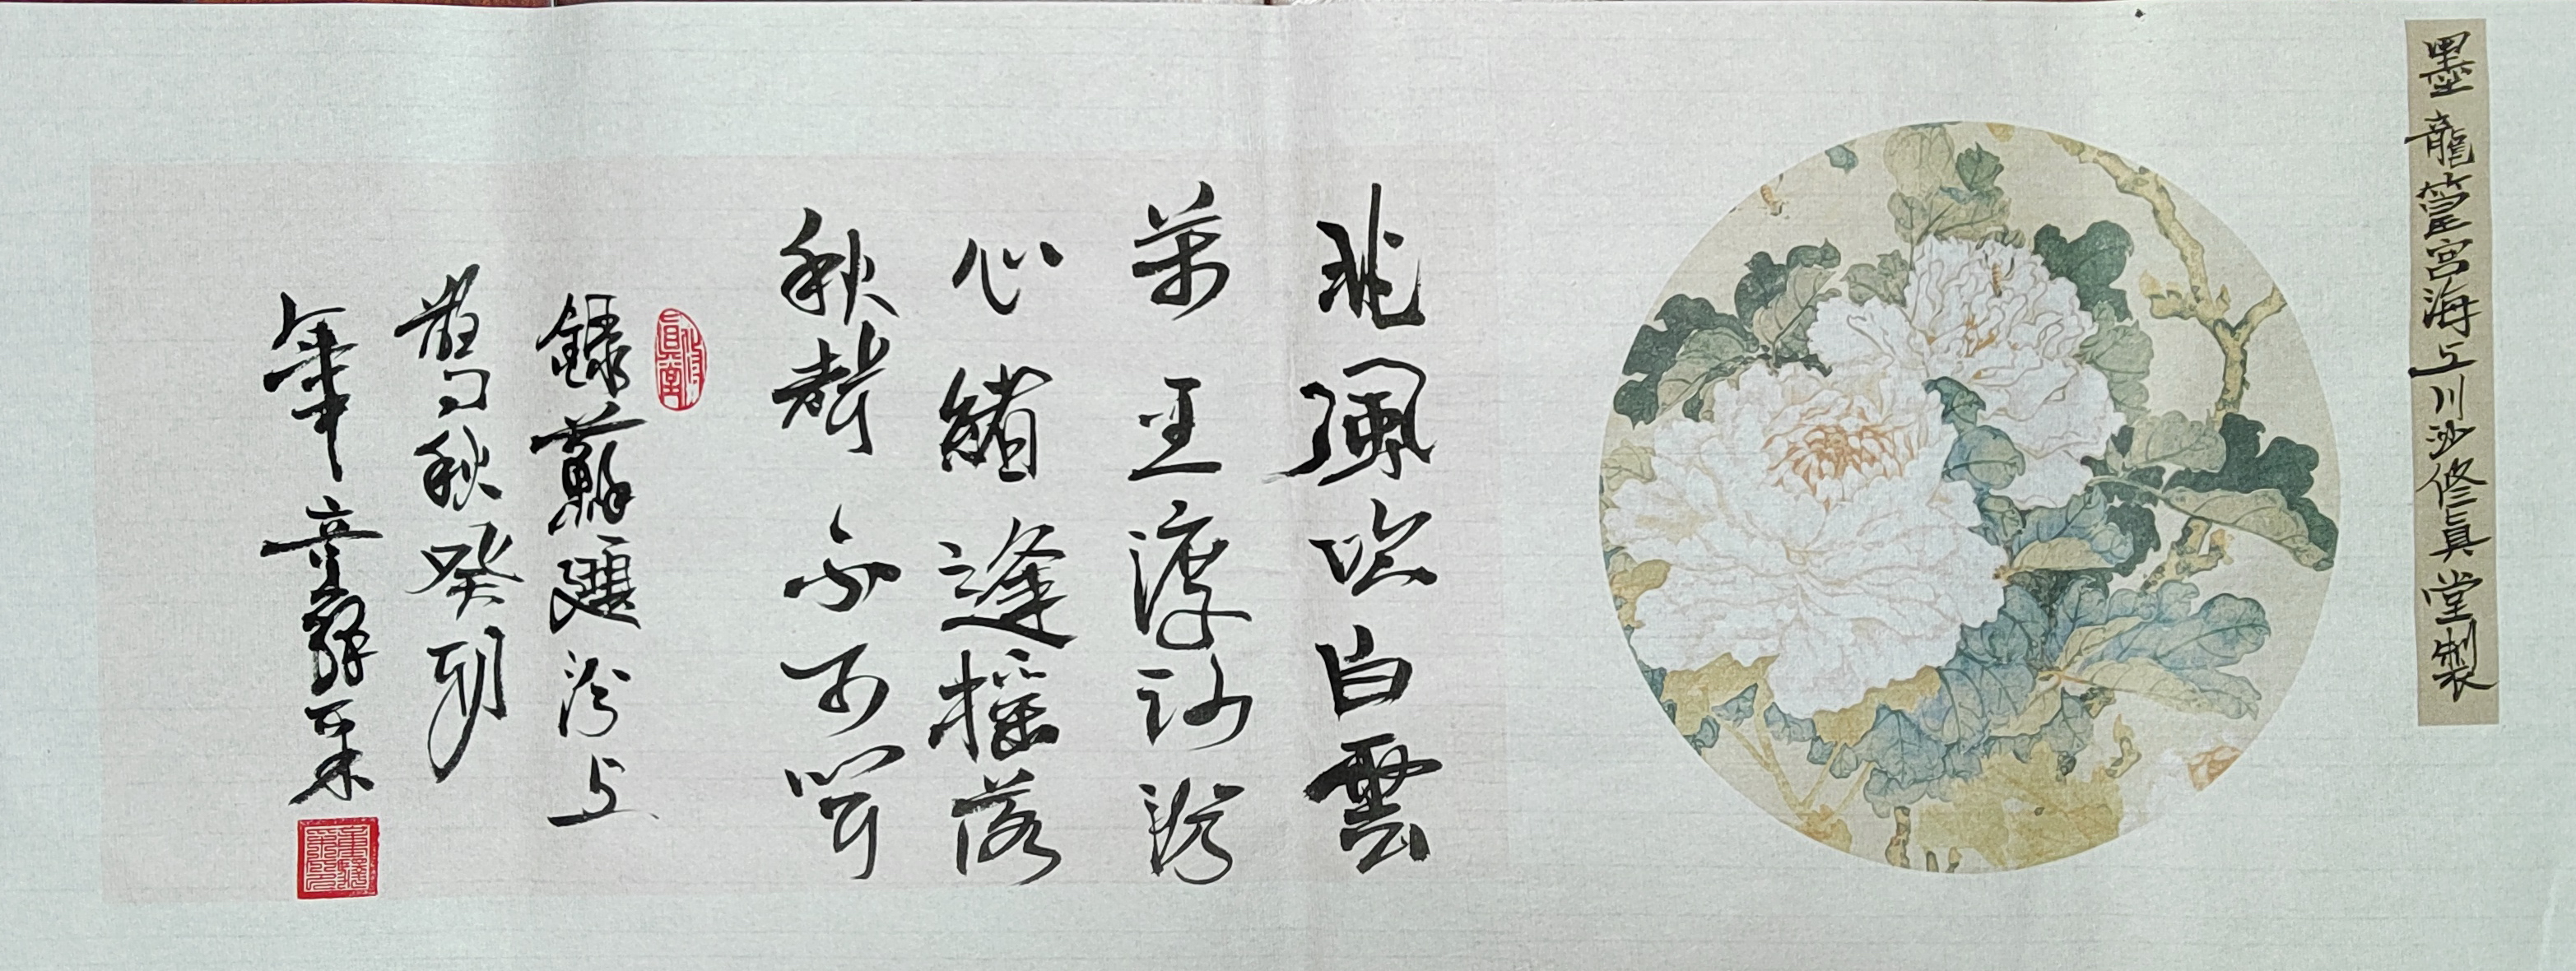 墨龍篁宮海上川沙修真堂製
北風吹白雲
萬里渡河汾
心緒逢摇落
秋聲不可聞
修真堂
錄蘇頲汾上
驚秋癸卯
年